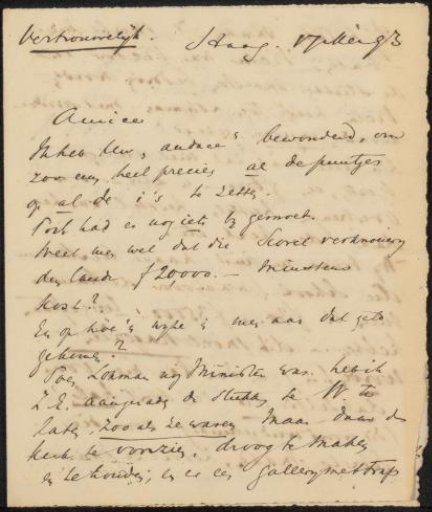 Vertrouwelijk. 's Haag. 17 Mei 93
Amice
Ik heb Uw "audace" bewonderd, om
zoo een heel precies al de puntjes
op al de i's te zetten.
Toch had er nog iets bij gemoet.
Weet men wel dat die
den lande f 20,000.— minstens
kost?
En op hoe'n wijze is men aan dat geld
gekomen?
Toen Lohman nog Minister was heb ik
Z.E. aangeraden de Stukken te W. te
laten, zoo als ze waren maar daar de
kerk te voorzien, droog te maken
en te houden, en er een gallery met trap